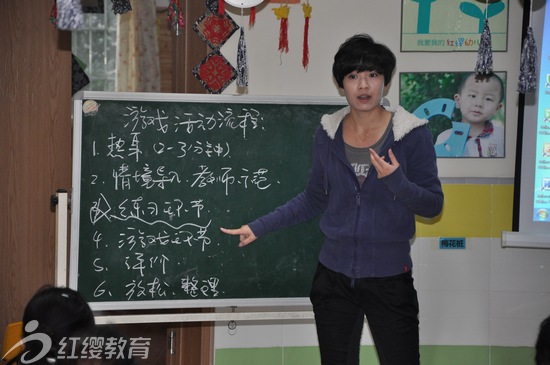 我爱我的红缨幼儿
游戏活动流程:
1. 热身 (2-3分钟)
2. 情境导入 教师示范.
练习环节
4. 游戏环节.
5. 评价
6. 放松、整理.
梅花桩
红缨教育